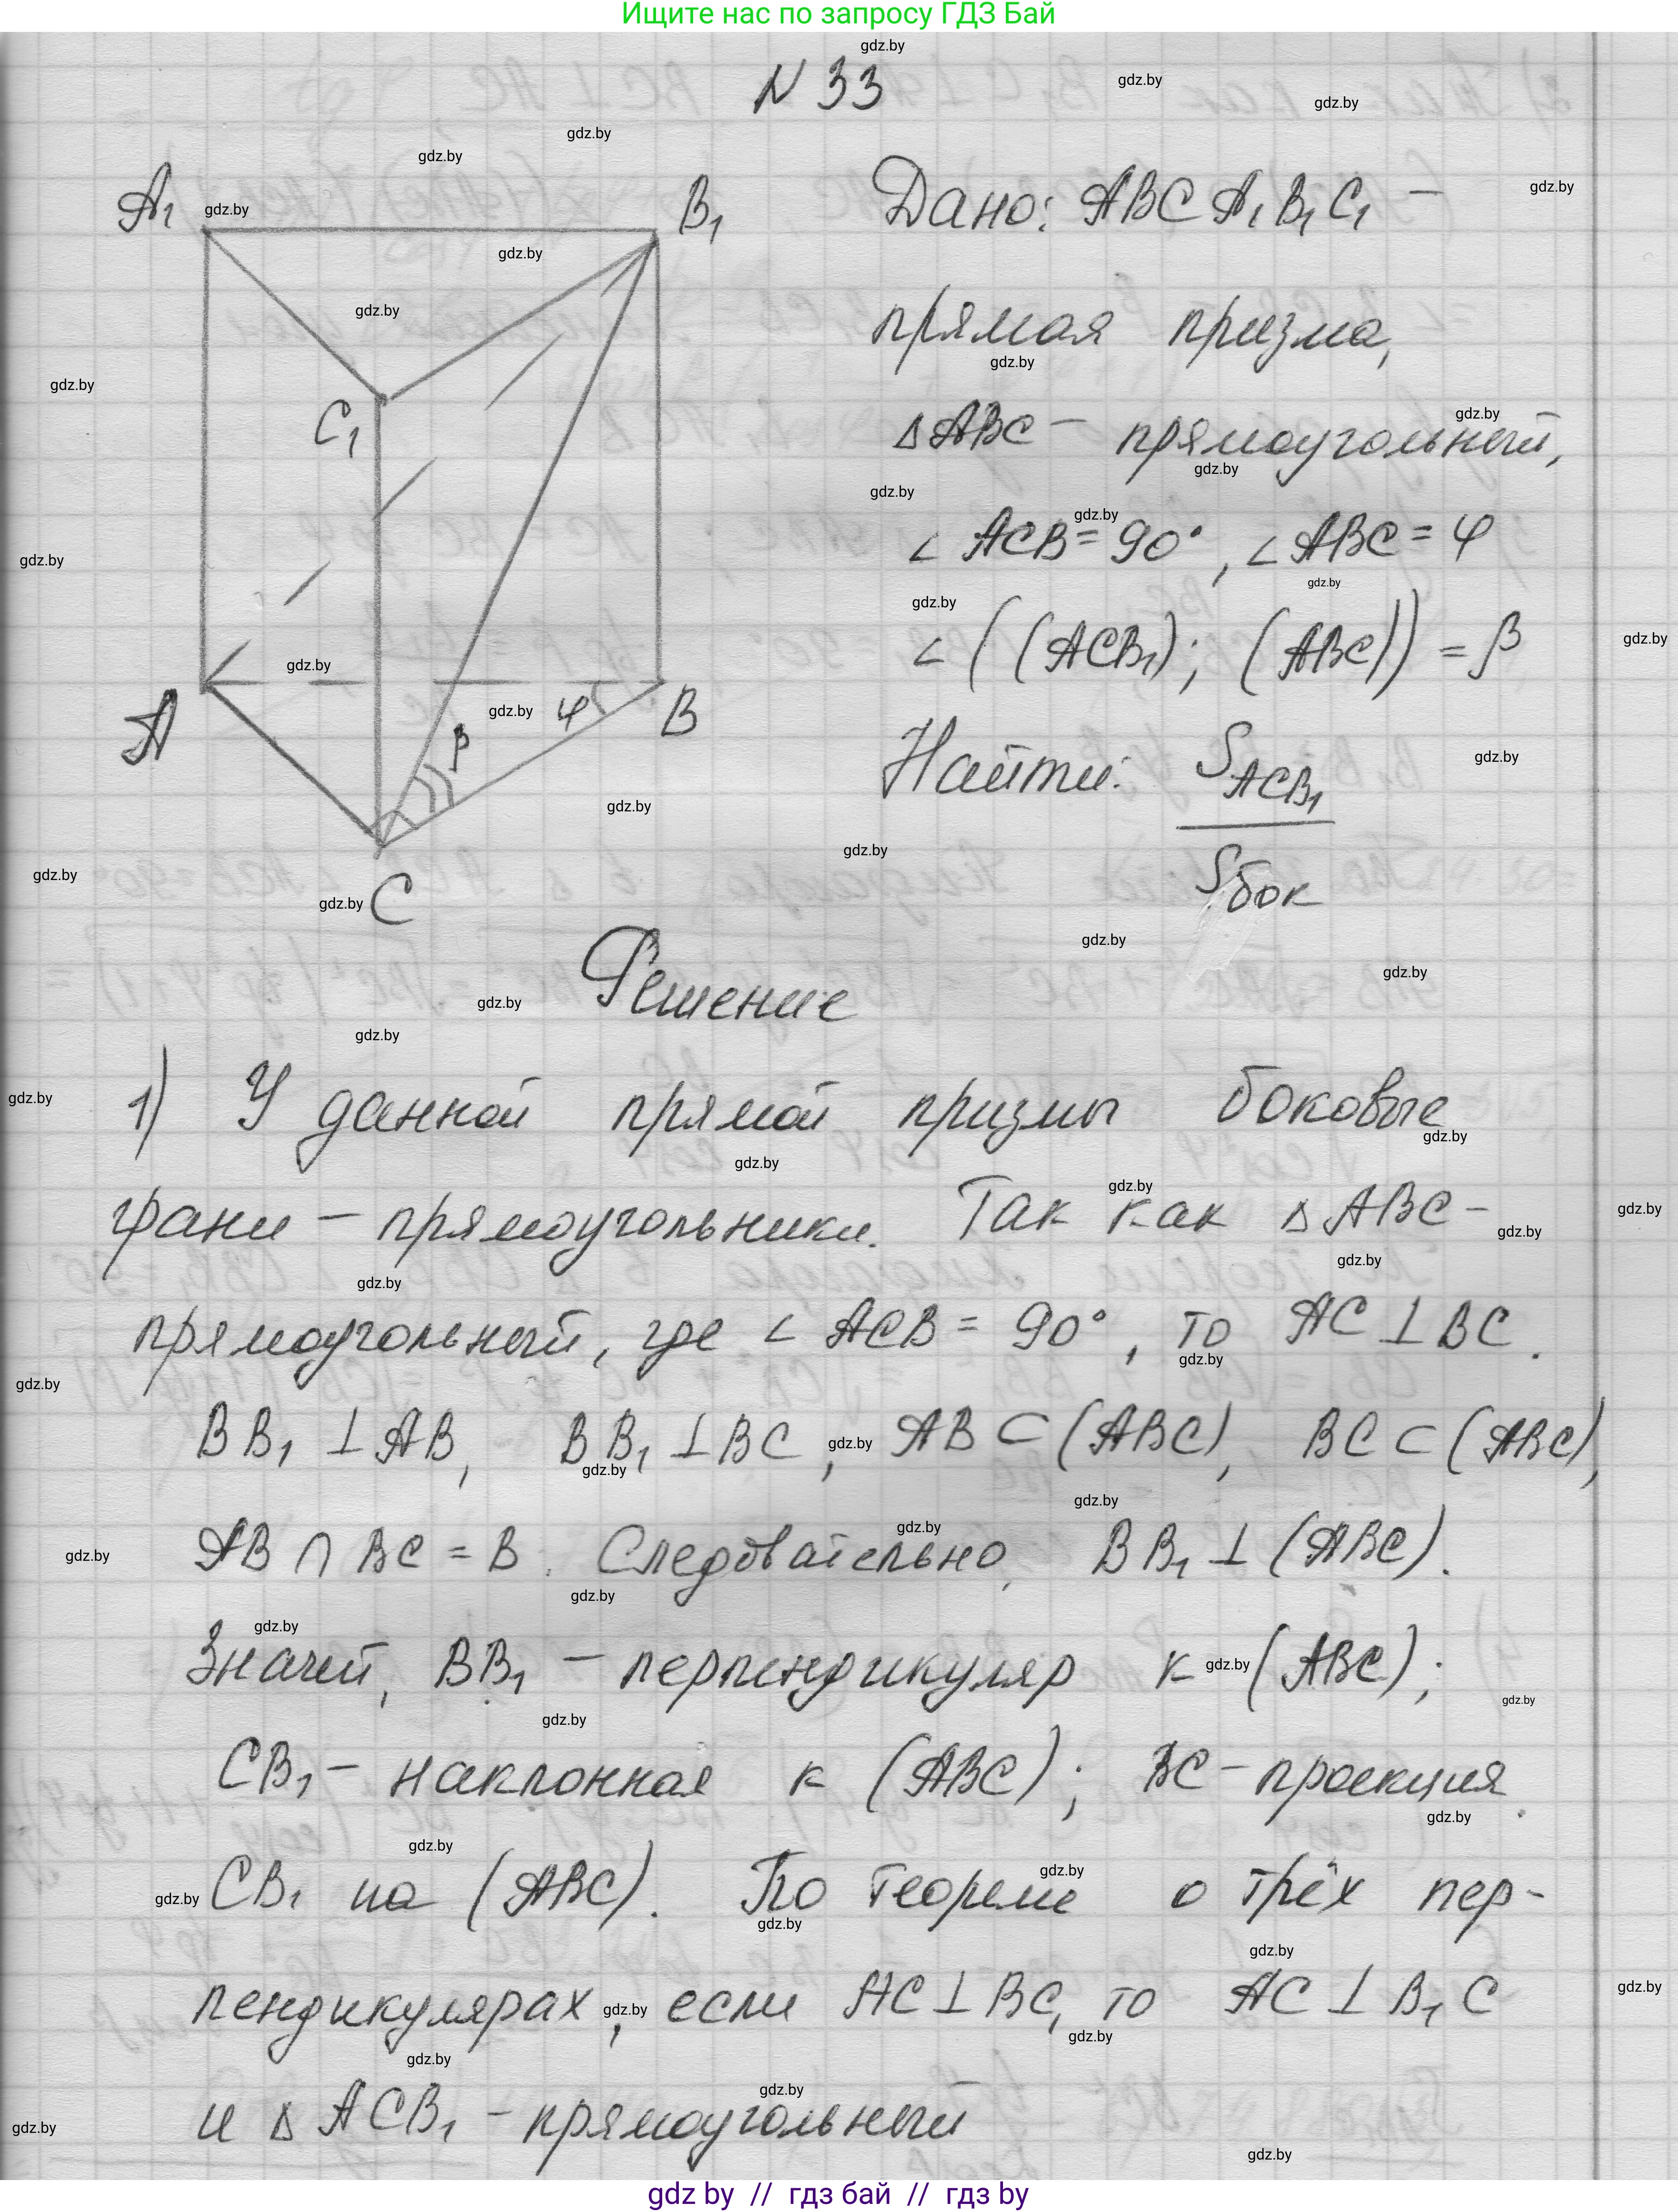 Ищите нас по запросу ГДЗ Бай
N 33
A₁ B₁ C₁ A B C φ β
Дано: ABCA₁B₁C₁ –
прямая призма,
△ABC – прямоугольный,
∠ACB = 90°, ∠ABC = φ
∠((ACB₁); (ABC)) = β
Найти: S_ACB₁
S_бок
Решение
1) У данной прямой призмы боковые
грани – прямоугольники. Так как △ABC –
прямоугольный, где ∠ACB = 90°, то AC ⊥ BC.
BB₁ ⊥ AB, BB₁ ⊥ BC, AB ⊂ (ABC), BC ⊂ (ABC),
AB ∩ BC = B. Следовательно, BB₁ ⊥ (ABC).
Значит, BB₁ – перпендикуляр к (ABC);
CB₁ – наклонная к (ABC); BC – проекция
CB₁ на (ABC). По теореме о трёх пер-
пендикулярах, если AC ⊥ BC, то AC ⊥ B₁C
и △ACB₁ – прямоугольный
gdz by // гдз бай // гдз by